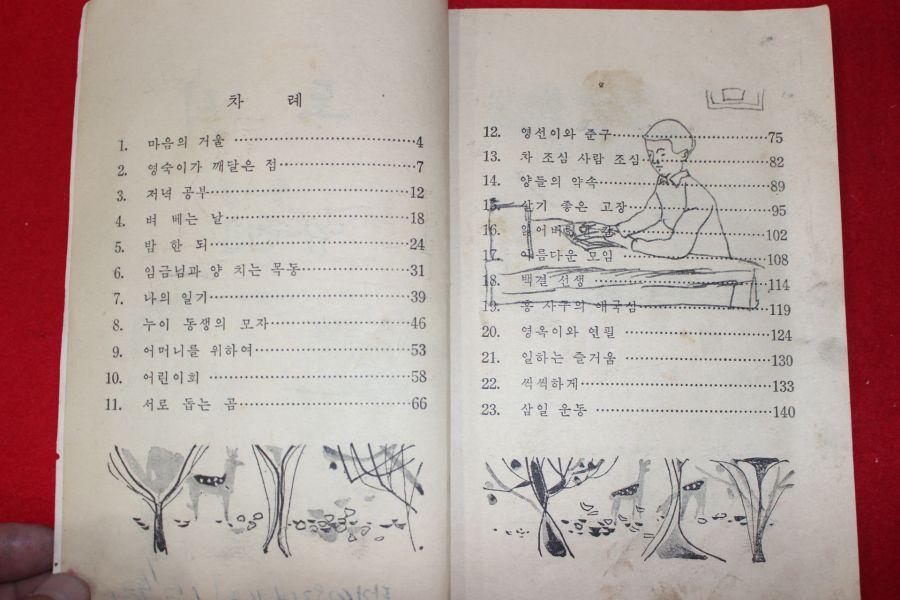 차 례
1. 마음의 거울 4
2. 영숙이가 깨달은 점 7
3. 저녁 공부 12
4. 벼 베는 날 18
5. 밤 한 되 24
6. 임금님과 양 치는 목동 31
7. 나의 일기 39
8. 누이 동생의 모자 46
9. 어머니를 위하여 53
10. 어린이회 58
11. 서로 돕는 곰 66
12. 영선이와 준구 75
13. 차 조심 사람 조심 82
14. 양들의 약속 89
15. 살기 좋은 고장 95
16. 102
17. 아름다운 모임 108
18. 백결 선생 114
19. 홍 사구의 애국심 119
20. 영옥이와 연필 124
21. 일하는 즐거움 130
22. 씩씩하게 133
23. 삼일 운동 140